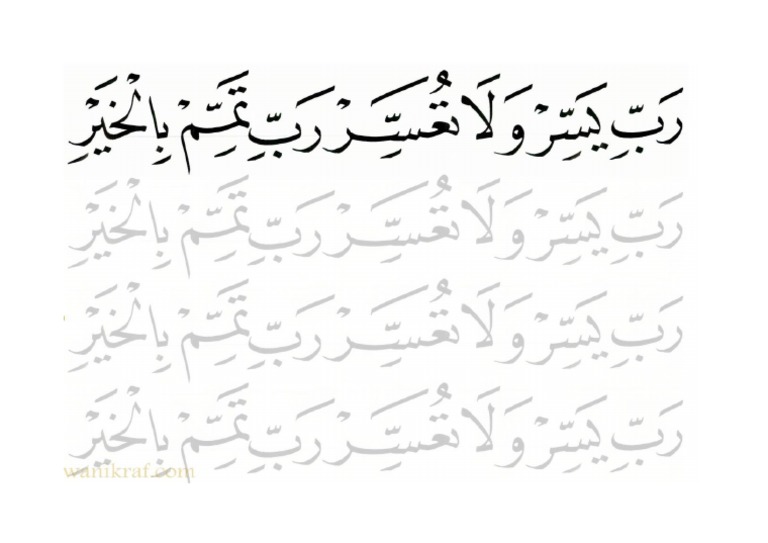 رَبِّ يَسِّرْ وَلَا تُعَسِّرْ رَبِّ تَمِّمْ بِالْخَيْرِ
رَبِّ يَسِّرْ وَلَا تُعَسِّرْ رَبِّ تَمِّمْ بِالْخَيْرِ
رَبِّ يَسِّرْ وَلَا تُعَسِّرْ رَبِّ تَمِّمْ بِالْخَيْرِ
رَبِّ يَسِّرْ وَلَا تُعَسِّرْ رَبِّ تَمِّمْ بِالْخَيْرِ
wanikraf.com